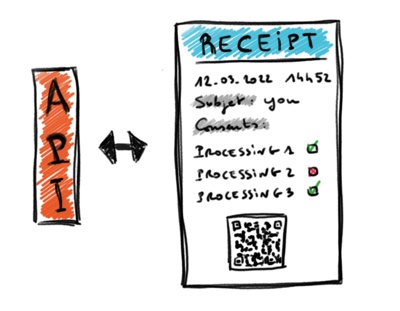 API
RECEIPT
12.03.2022 14h52
Subject: you
Consents:
PROCESSING 1
PROCESSING 2
PROCESSING 3